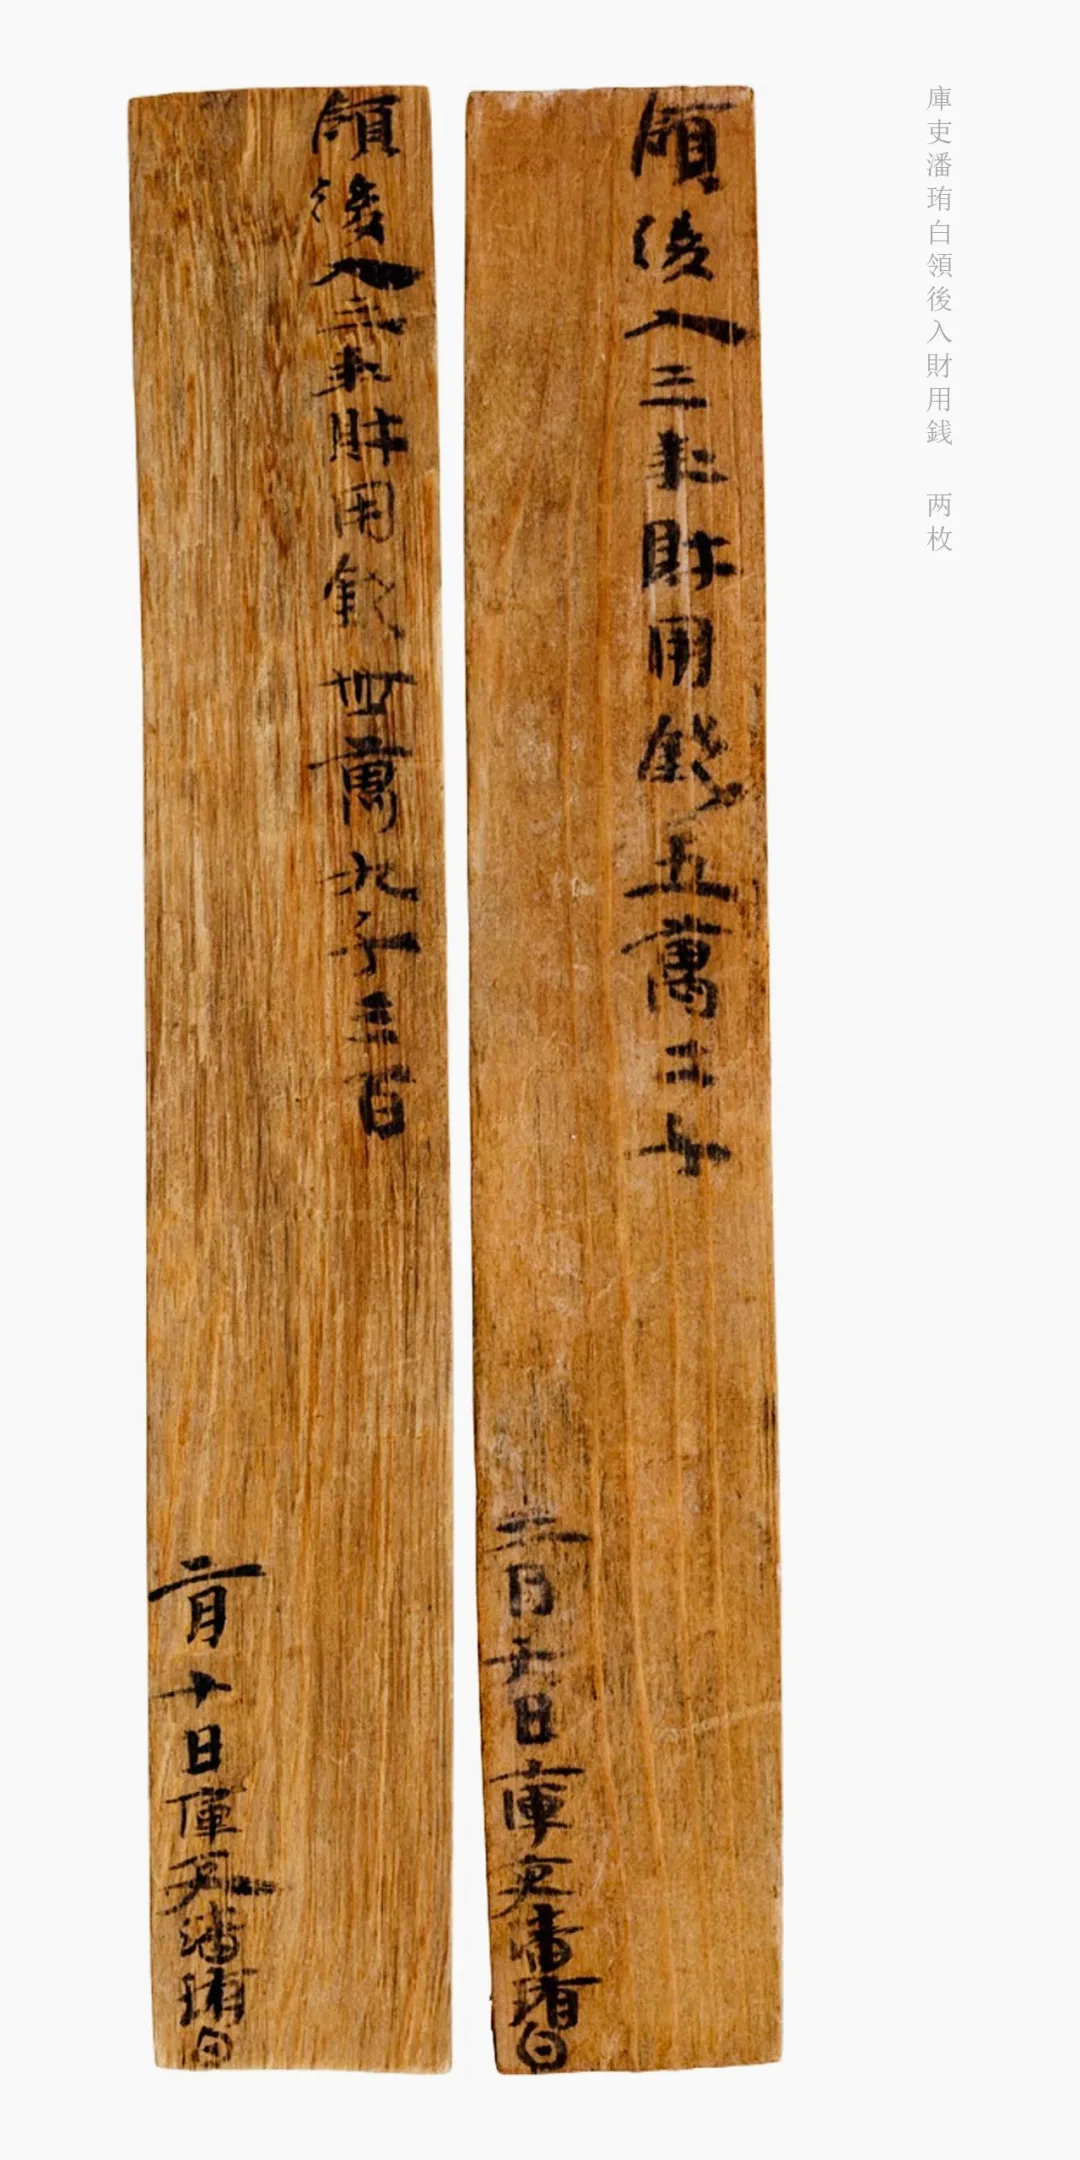 庫吏潘珛白領後入財用銭 两枚
領後入三年財用錢五萬二千
六月六日庫吏潘珛白
領後入三年財用錢四萬九千三百
二月十日庫吏潘珛白